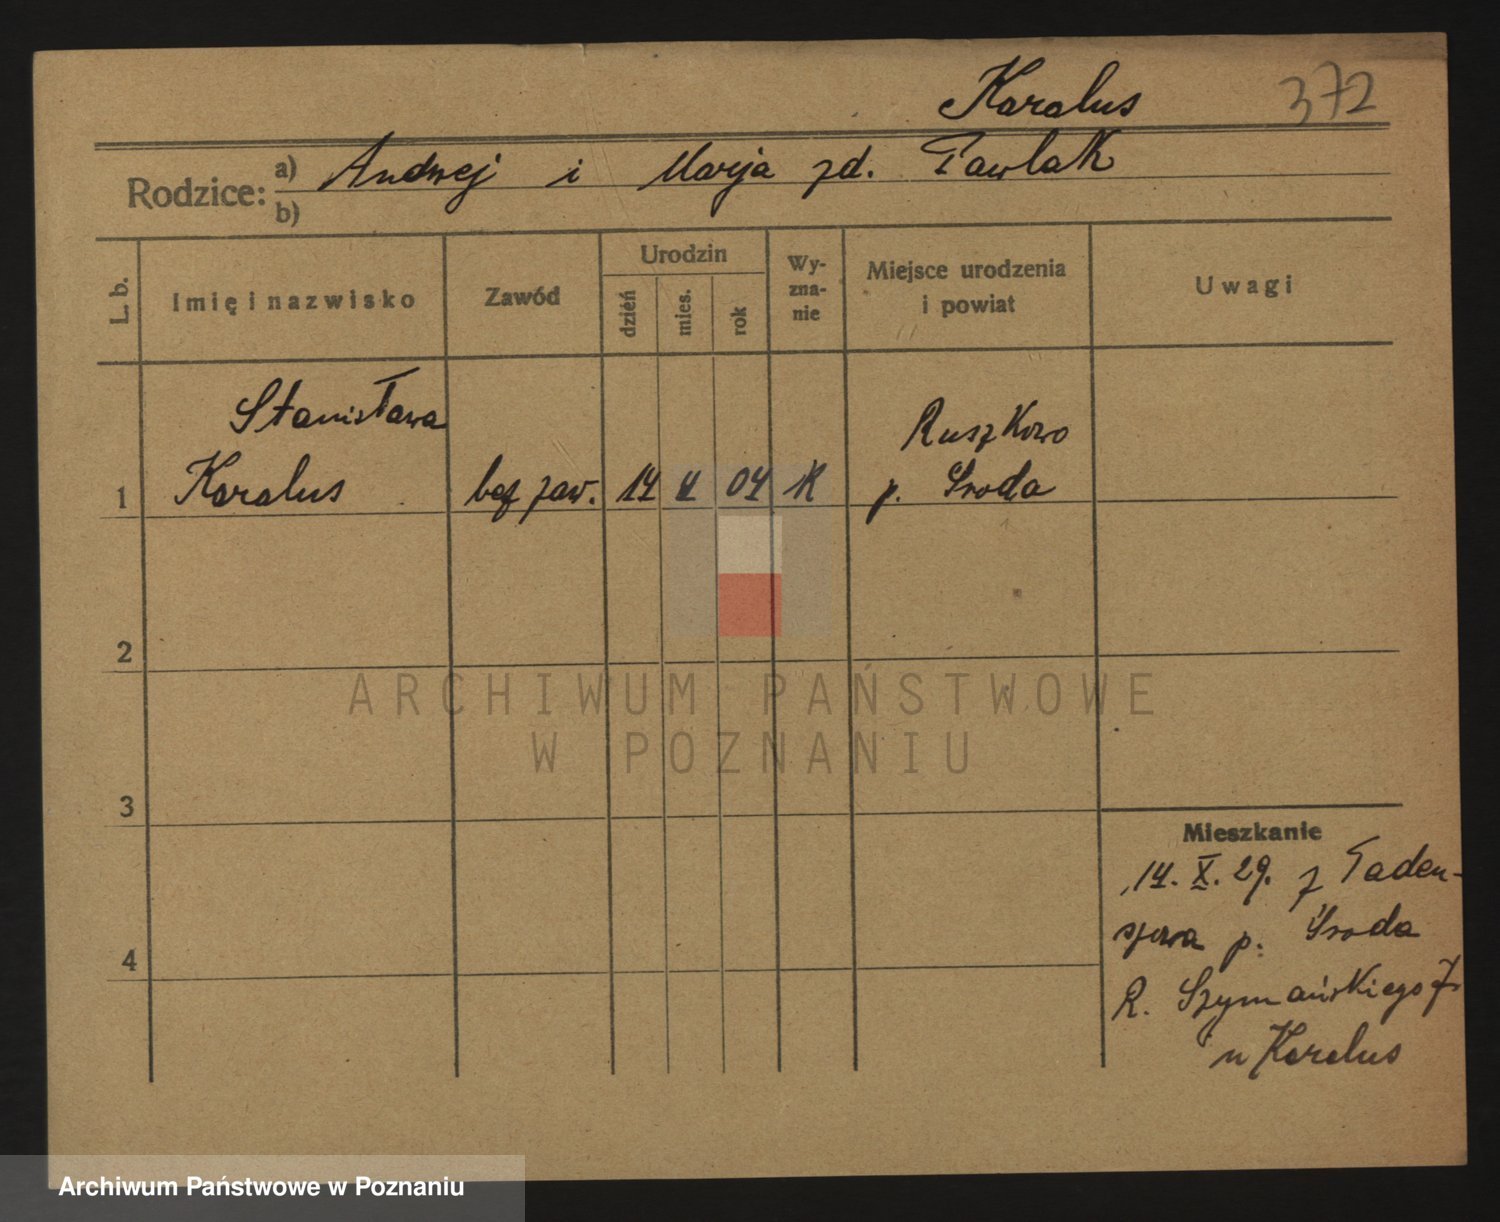 Karalus 372
Rodzice: a) Andrzej i Marja zd. Pawlak
b)
L. b. Imię i nazwisko Zawód Urodzin dzień mies. rok Wy-zna-nie Miejsce urodzenia i powiat Uwagi
Stanisława Ruszkowo
1 Karalus bez zaw. 14 04 K p. Środa
2
ARCHIWUM PAŃSTWOWE
W POZNANIU
3
Mieszkanie
14. X. 29. z Taden-
szewa p. Środa
4
R. Szymańskiego 7
u Karalus
Archiwum Państwowe w Poznaniu